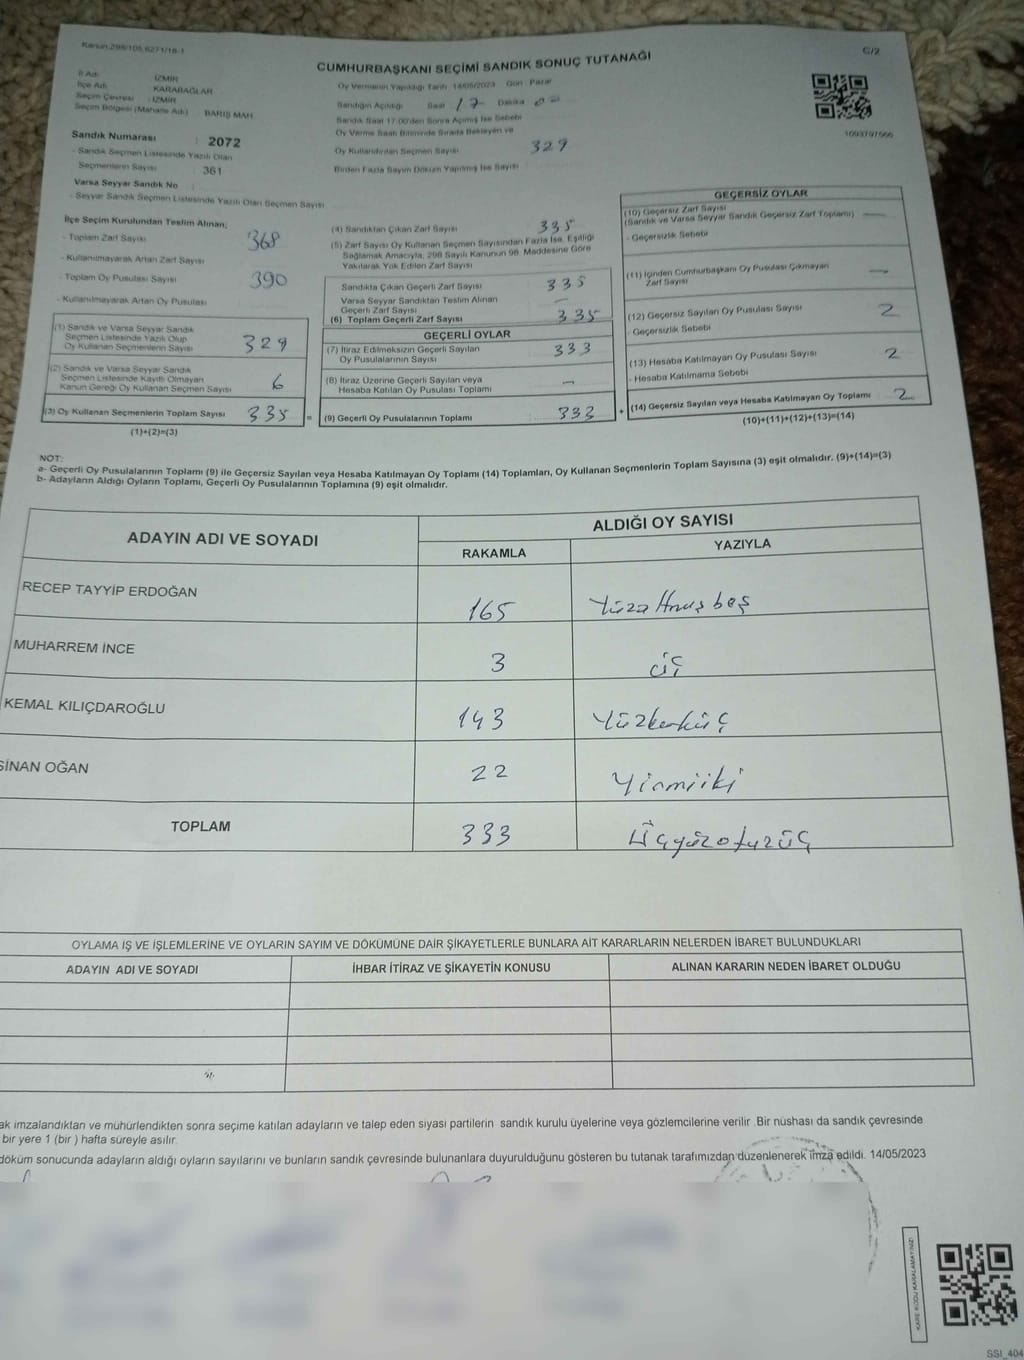 Kanun:298/105,6271/18-1
C/2
CUMHURBAŞKANI SEÇİMİ SANDIK SONUÇ TUTANAĞI
İl Adı : İZMİR
İlçe Adı : KARABAĞLAR
Seçim Çevresi : İZMİR
Seçim Bölgesi (Mahalle Adı) : BARIŞ MAH.
Sandık Numarası : 2072
- Sandık Seçmen Listesinde Yazılı Olan
Seçmenlerin Sayısı : 361
Varsa Seyyar Sandık No :
- Seyyar Sandık Seçmen Listesinde Yazılı Olan Seçmen Sayısı
Oy Vermenin Yapıldığı Tarih 14/05/2023 Gün : Pazar
Sandığın Açıldığı Saat 17 Dakika 00
Sandık Saat 17.00'den Sonra Açılmış İse Sebebi
Oy Verme Saati Bitiminde Sırada Bekleyen ve
Oy Kullandırılan Seçmen Sayısı 329
Birden Fazla Sayım Döküm Yapılmış İse Sayısı
İlçe Seçim Kurulundan Teslim Alınan;
- Toplam Zarf Sayısı : 368
- Kullanılmayarak Artan Zarf Sayısı
- Toplam Oy Pusulası Sayısı : 390
- Kullanılmayarak Artan Oy Pusulası
(1) Sandık ve Varsa Seyyar Sandık
Seçmen Listesinde Yazılı Olup
Oy Kullanan Seçmenlerin Sayısı : 329
(2) Sandık ve Varsa Seyyar Sandık
Seçmen Listesinde Kayıtlı Olmayan
Kanun Gereği Oy Kullanan Seçmen Sayısı : 6
(3) Oy Kullanan Seçmenlerin Toplam Sayısı : 335 =
(1)+(2)=(3)
(4) Sandıktan Çıkan Zarf Sayısı 335
(5) Zarf Sayısı Oy Kullanan Seçmen Sayısından Fazla İse, Eşitliği
Sağlamak Amacıyla, 298 Sayılı Kanunun 98. Maddesine Göre
Yakılarak Yok Edilen Zarf Sayısı
Sandıkta Çıkan Geçerli Zarf Sayısı : 335
Varsa Seyyar Sandıktan Teslim Alınan
Geçerli Zarf Sayısı : —
(6) Toplam Geçerli Zarf Sayısı : 335
GEÇERLİ OYLAR
(7) İtiraz Edilmeksizin Geçerli Sayılan
Oy Pusulalarının Sayısı : 333
(8) İtiraz Üzerine Geçerli Sayılan veya
Hesaba Katılan Oy Pusulası Toplamı : —
(9) Geçerli Oy Pusulalarının Toplamı : 333 +
GEÇERSİZ OYLAR
(10) Geçersiz Zarf Sayısı
(Sandık ve Varsa Seyyar Sandık Geçersiz Zarf Toplamı) : —
- Geçersizlik Sebebi
(11) İçinden Cumhurbaşkanı Oy Pusulası Çıkmayan
Zarf Sayısı : —
(12) Geçersiz Sayılan Oy Pusulası Sayısı : 2
- Geçersizlik Sebebi
(13) Hesaba Katılmayan Oy Pusulası Sayısı : 2
- Hesaba Katılmama Sebebi
(14) Geçersiz Sayılan veya Hesaba Katılmayan Oy Toplamı : 2
(10)+(11)+(12)+(13)=(14)
NOT:
a- Geçerli Oy Pusulalarının Toplamı (9) ile Geçersiz Sayılan veya Hesaba Katılmayan Oy Toplamı (14) Toplamları, Oy Kullanan Seçmenlerin Toplam Sayısına (3) eşit olmalıdır. (9)+(14)=(3)
b- Adayların Aldığı Oyların Toplamı, Geçerli Oy Pusulalarının Toplamına (9) eşit olmalıdır.
ADAYIN ADI VE SOYADI ALDIĞI OY SAYISI
RAKAMLA YAZIYLA
RECEP TAYYİP ERDOĞAN 165 Yüzaltmışbeş
MUHARREM İNCE 3 üç
KEMAL KILIÇDAROĞLU 143 Yüzkırküç
SİNAN OĞAN 22 Yirmiiki
TOPLAM 333 Üçyüzotuzüç
OYLAMA İŞ VE İŞLEMLERİNE VE OYLARIN SAYIM VE DÖKÜMÜNE DAİR ŞİKAYETLERLE BUNLARA AİT KARARLARIN NELERDEN İBARET BULUNDUKLARI
ADAYIN ADI VE SOYADI İHBAR İTİRAZ VE ŞİKAYETİN KONUSU ALINAN KARARIN NEDEN İBARET OLDUĞU
ak imzalandıktan ve mühürlendikten sonra seçime katılan adayların ve talep eden siyasi partilerin sandık kurulu üyelerine veya gözlemcilerine verilir .Bir nüshası da sandık çevresinde
bir yere 1 (bir ) hafta süreyle asılır.
döküm sonucunda adayların aldığı oyların sayılarını ve bunların sandık çevresinde bulunanlara duyurulduğunu gösteren bu tutanak tarafımızdan düzenlenerek imza edildi. 14/05/2023
KARE KODU KARALAMAYINIZ!
SSI_404